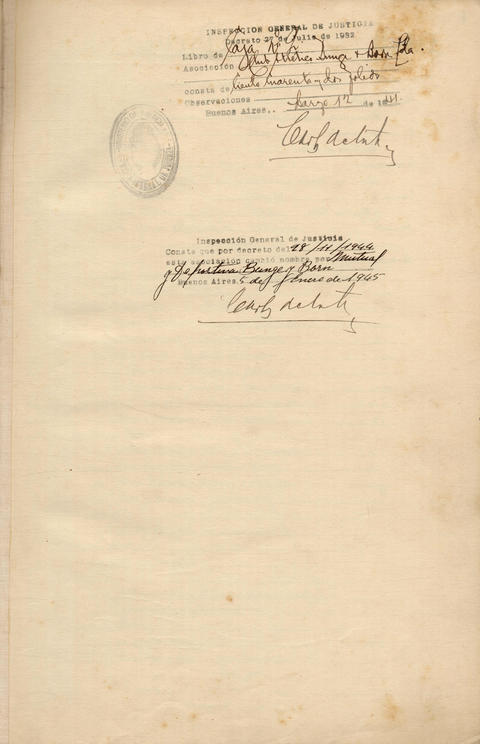 INSPECCION GENERAL DE JUSTICIA
Decreto 27 de Julio de 1932
Libro de Caja Nº
Asociación Club Atlético Bunge & Born Ltda.
consta de Ciento cuarenta y dos folios
Observaciones
Buenos Aires, Marzo 12 de 1941.
Inspección General de Justicia
Consta que por decreto del 18/11/1944
esta asociación cambió nombre por Mutual
y Deportiva Bunge y Born
Buenos Aires, 5 de Enero de 1945